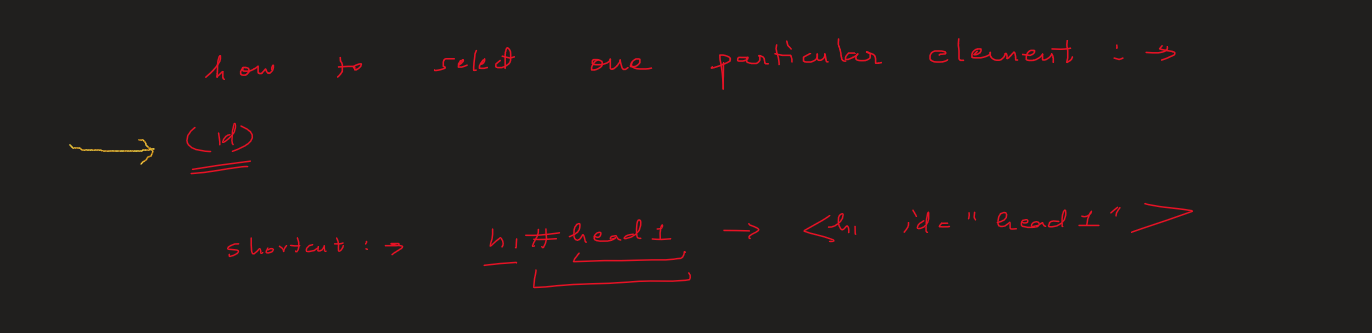 how to select one particular element : →
(id)
shortcut : → h1#head1 → <h1 id="head1">